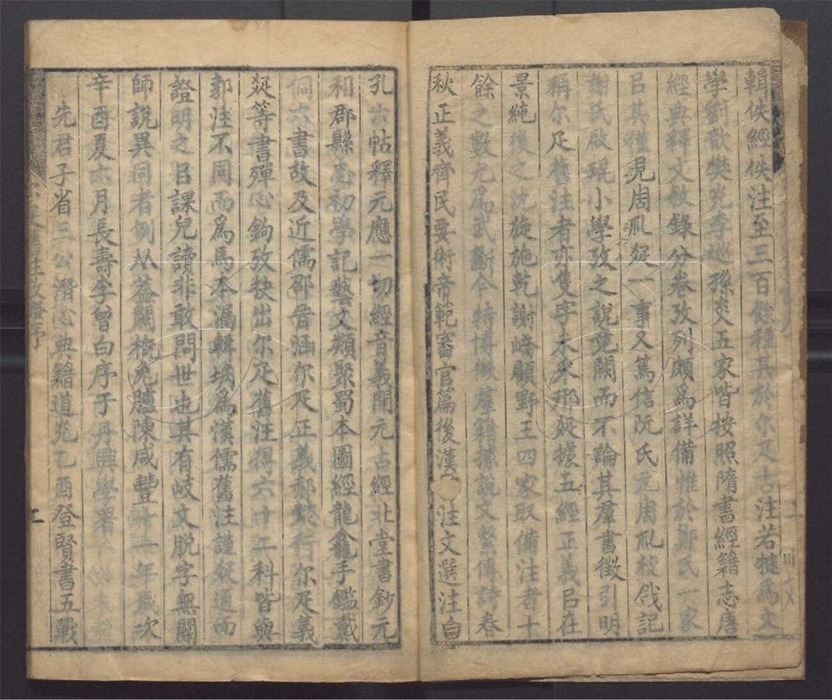 輯佚經佚注至三百餘種其於尔疋古注若犍爲文
學劉歆樊光李巡孫炎五家皆按照隋書經籍志唐
經典釋文敘錄分卷攷列頗爲詳備惟於鄭氏一家
㠯其僅見周礼疏一事又篤信阮氏元周礼校記
謝氏啟琨小學攷之說竟闕而不論其羣書徵引明
稱尔疋舊注者亦隻字未采那疏據五經正義㠯在
景純後之沈旋施乾謝嶠顧野王四家取備注者十
餘之數尤爲武斷今特博徵羣籍據說文繫傳詩春
秋正義齊民要術帝範審官篇後漢注文選注白
孔六帖釋元應一切經音義開元占經北堂書鈔元
和郡縣志初學記藝文類聚蜀本圖經龍龕手鑑戴
侗六書故及近儒邵晉涵尔疋正義郝懿行尔疋義
疏等書殫心鉤攷抉出尔疋舊注得六十二科皆與
郭注不同而爲馬本漏輯塙爲漢儒舊注謹叙通而
證明之㠯課兒讀非敢問世也其有岐文脫字無關
師說異同者例从葢闕槪免臚陳咸豐十一年歲次
辛酉夏六月長壽李曾白序于丹興學署
先君子省三公潛心典籍道光乙酉登賢書五戰
二